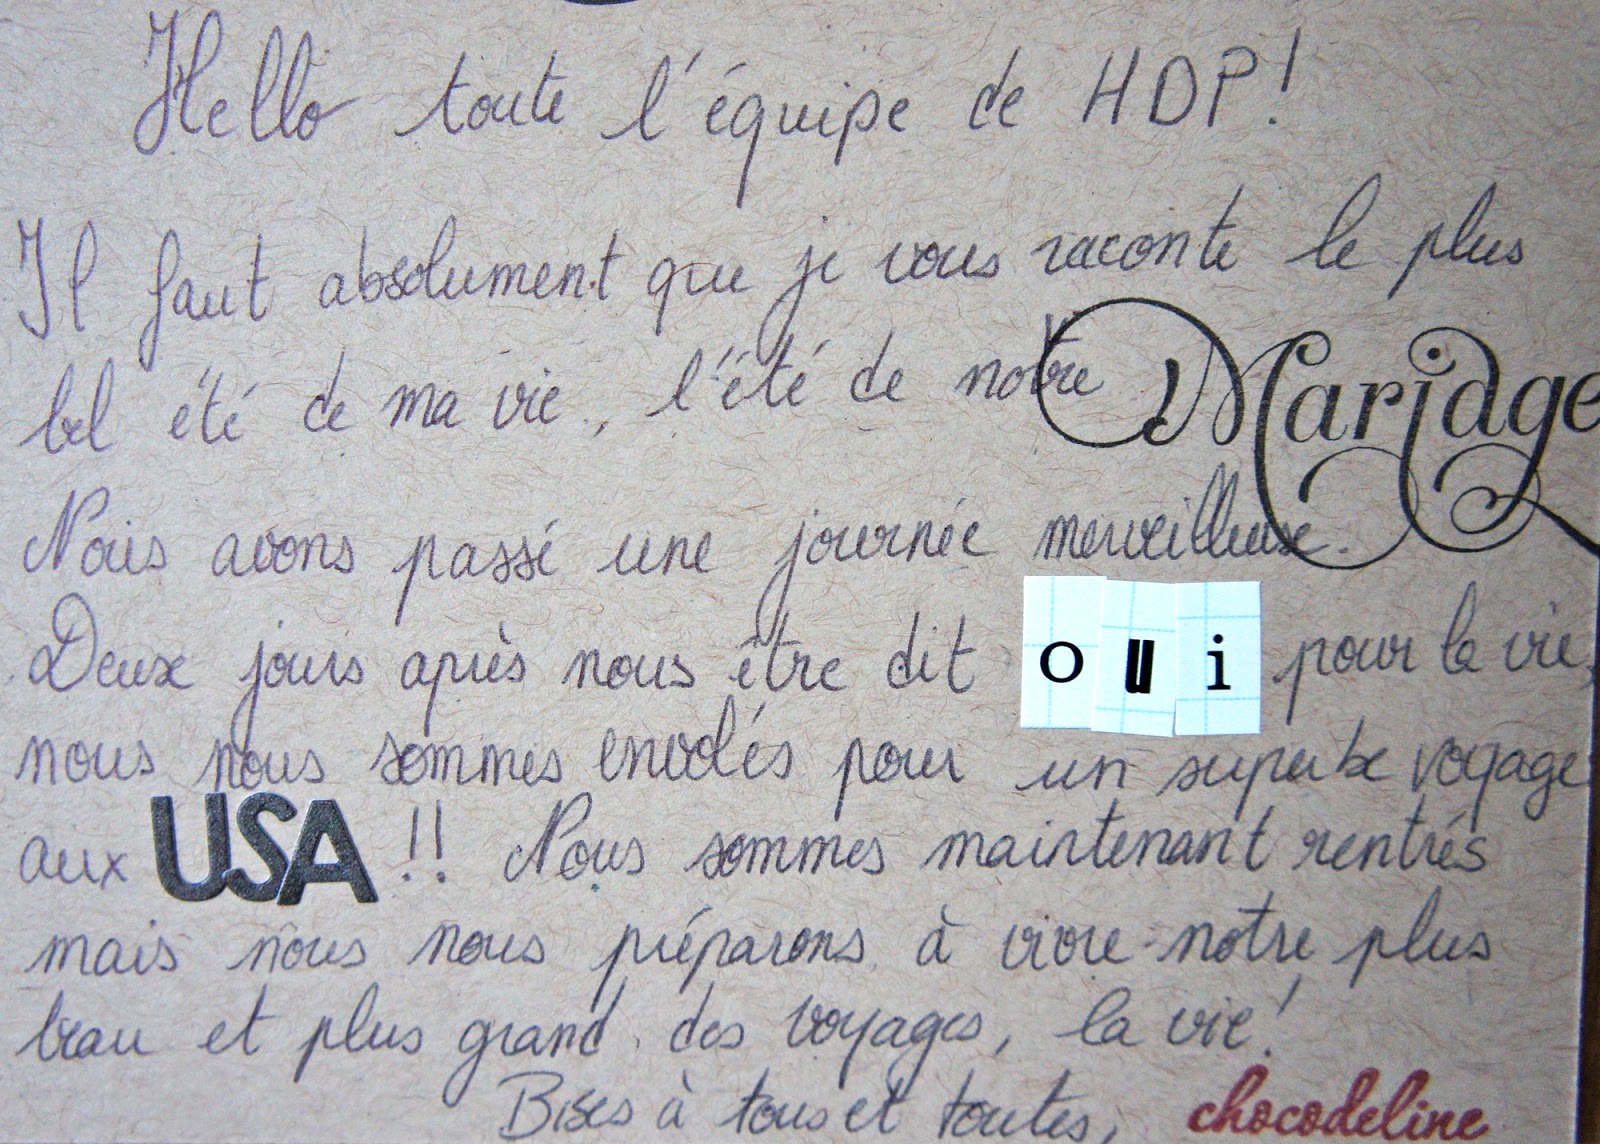 Hello toute l'équipe de HDP!
Il faut absolument que je vous raconte le plus
bel été de ma vie, l'été de notre Mariage
Nous avons passé une journée merveilleuse.
Deux jours après nous être dit oui pour la vie,
nous nous sommes envolés pour un superbe voyage
aux USA !! Nous sommes maintenant rentrés
mais nous nous préparons à vivre notre plus
beau et plus grand des voyages, la vie!
Bises à tous et toutes, chocodeline